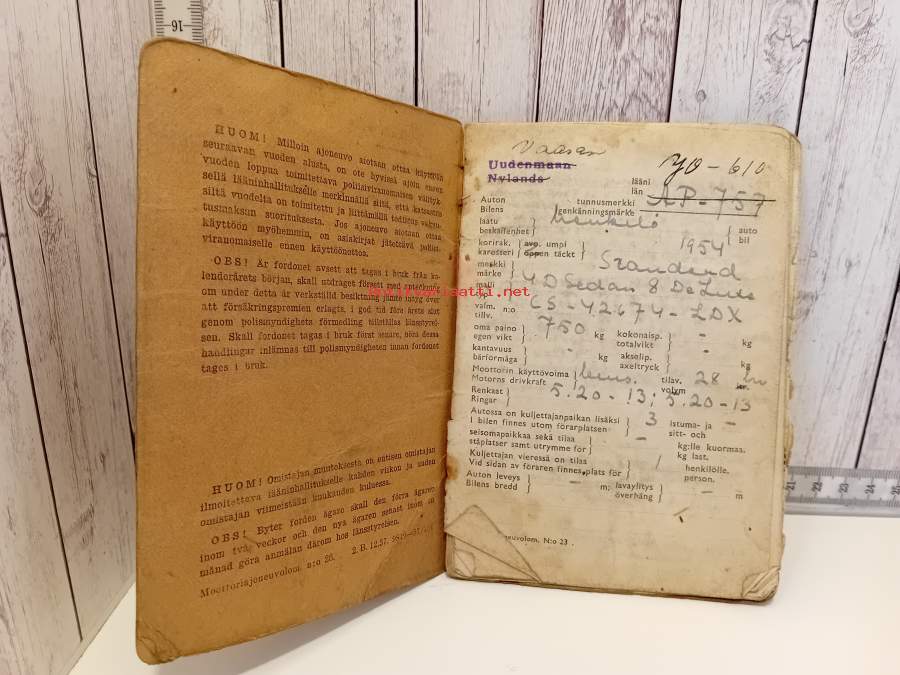 HUOM! Milloin ajoneuvo aiotaan ottaa käyttöön
seuraavan vuoden alusta, on ote hyvissä ajoin ennen
vuoden loppua toimitettava poliisiviranomaisen välityk-
sellä lääninhallitukselle merkinnällä siitä, että katsastus
siltä vuodelta on toimitettu ja liittämällä todistus vakuu-
tusmaksun suorituksesta. Jos ajoneuvo aiotaan ottaa
käyttöön myöhemmin, on asiakirjat jätettävä poliisi-
viranomaiselle ennen käyttöönottoa.
OBS! Är fordonet avsett att tagas i bruk från ka-
lenderårets början, skall utdraget försett med anteckning
om under detta år verkställd besiktning jämte intyg över
att försäkringspremien erlagts, i god tid före årets slut
genom polismyndighets förmedling tillställas länsstyrel-
sen. Skall fordonet tagas i bruk först senare, böra dessa
handlingar inlämnas till polismyndigheten innan fordonet
tages i bruk.
HUOM! Omistajan muutoksesta on entisen omistajan
ilmoitettava lääninhallitukselle kahden viikon ja uuden
omistajan viimeistään kuukauden kuluessa.
OBS! Byter fordon ägare skall den förra ägaren
inom två veckor och den nya ägaren senast inom en
månad göra anmälan därom hos länsstyrelsen.
Moottoriajoneuvolom. n:o 26. 2. B. 12.57.
Vaasan
Uudenmaan
Nylands
lääni
län
YO-610
Auton tunnusmerkki
Bilens igenkänningsmärke
AP-757
laatu
beskaffenhet
Henkilö
auto
bil
korirak. avo. umpi
karosseri öppen täckt
1954
merkki
märke
Standard
malli
typ
4D Sedan 8 De Luxe
valm. n:o
tillv.
CS-42674-LDX
oma paino
egen vikt
750 kg
kokonaisp.
totalvikt
- kg
kantavuus
bärförmåga
- kg
akselip.
axeltryck
- kg
Moottorin käyttövoima
Motorns drivkraft
bens.
tilav.
volym
28
Renkaat
Ringar
5.20-13; 5.20-13
Autossa on kuljettajanpaikan lisäksi
I bilen finnes utom förarplatsen
3
istuma- ja
sitt- och
-
seisomapaikkaa sekä tilaa
ståplatser samt utrymme för
-
kg:lle kuormaa.
kg last.
Kuljettajan vieressä on tilaa
Vid sidan av föraren finnes plats för
1
henkilölle.
person.
Auton leveys
Bilens bredd
- m;
lavaylitys
överhäng
- m
neuvolom. N:o 23.
16
21 22 23 24 25